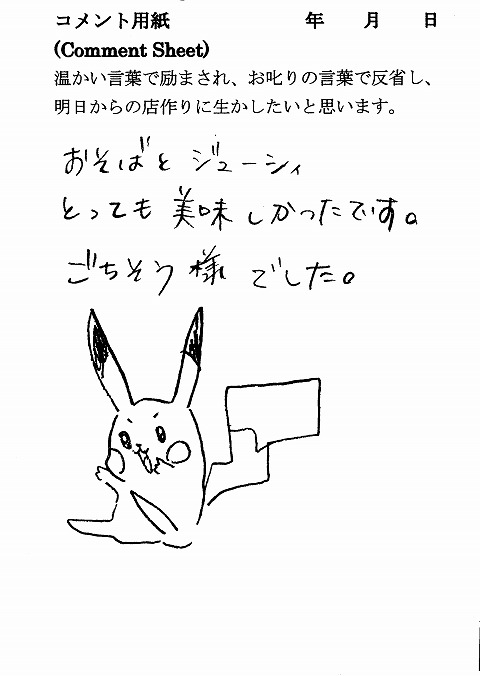 コメント用紙 年 月 日
(Comment Sheet)
温かい言葉で励まされ、お叱りの言葉で反省し、
明日からの店作りに生かしたいと思います。
おそばと ジューシィ
とっても 美味しかったです。
ごちそう様 でした。